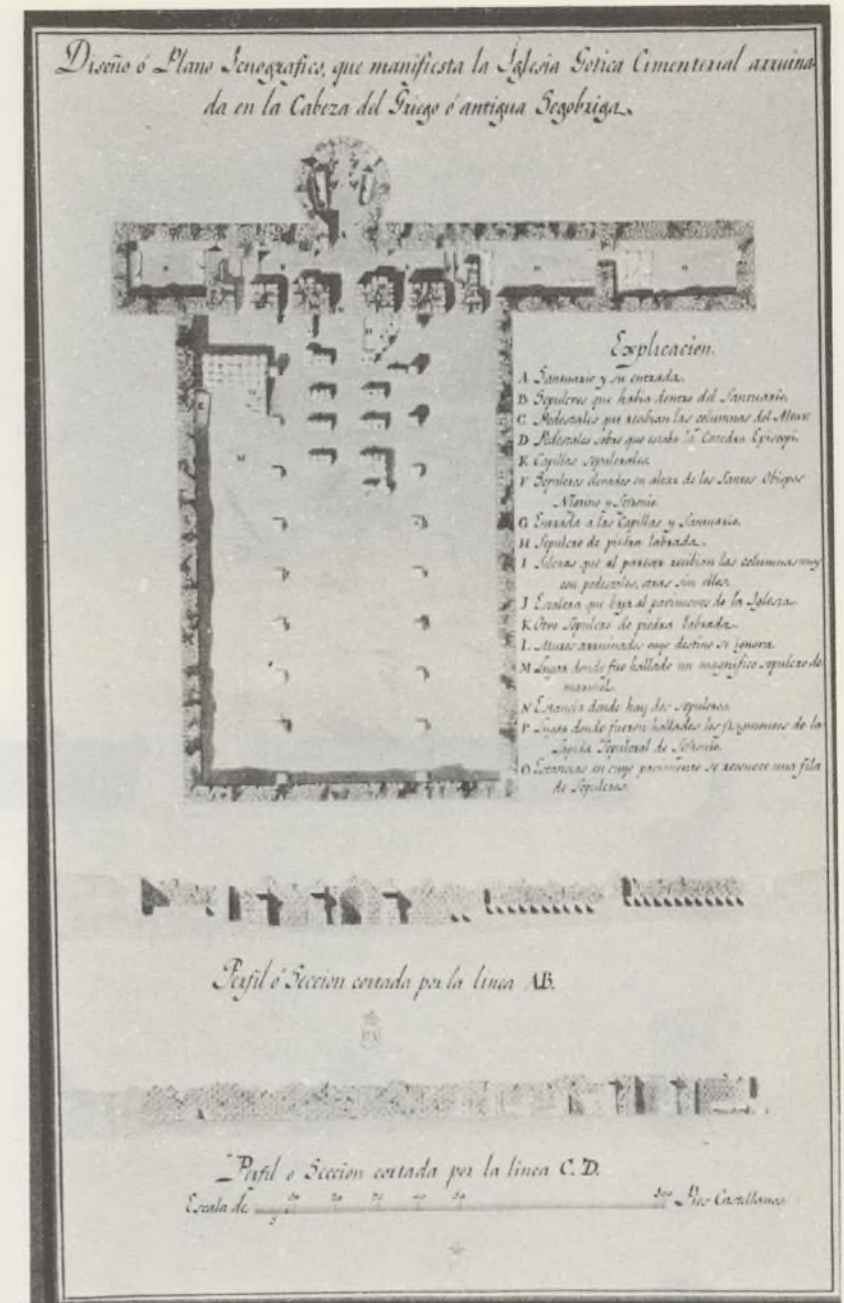 Diseño ó Plano Icnografico, que manifiesta la Iglesia Gotica Cimenterial arruina
da en la Cabeza del Griego ó antigua Segobriga.
Explicacion.
A Santuario y su entrada.
B Sepulcros que habia dentro del Santuario.
C Pedestales que recibian las columnas del Altar
D Pedestales sobre que estaba la Catedra Episcopi.
E Capillas Sepulcrales.
F Sepulcros elevados en altar de los Santos Obispos
Nigrino y Sefronio.
G Entrada a las Capillas y Santuario.
H Sepulcro de piedra labrada.
I que al parecer recibian las columnas
con pedestales, otras sin ellos.
J Escalera que baja al pavimento de la Iglesia.
K Otro Sepulcro de piedra labrada.
L Muros arruinados cuyo destino se ignora.
M Lugar donde fue hallado un magnifico sepulcro de
marmol.
N Estancia donde hay dos sepulcros
P Lugar donde fueron hallados los fragmentos de la
Lapida Sepulcral de Sefronio.
O Estancias en cuyo pavimento se reconoce una fila
de Sepulcros.
Perfil ó Seccion cortada por la linea AB.
Perfil o Seccion cortada por la linea C.D.
Escala de Pies Castellanos